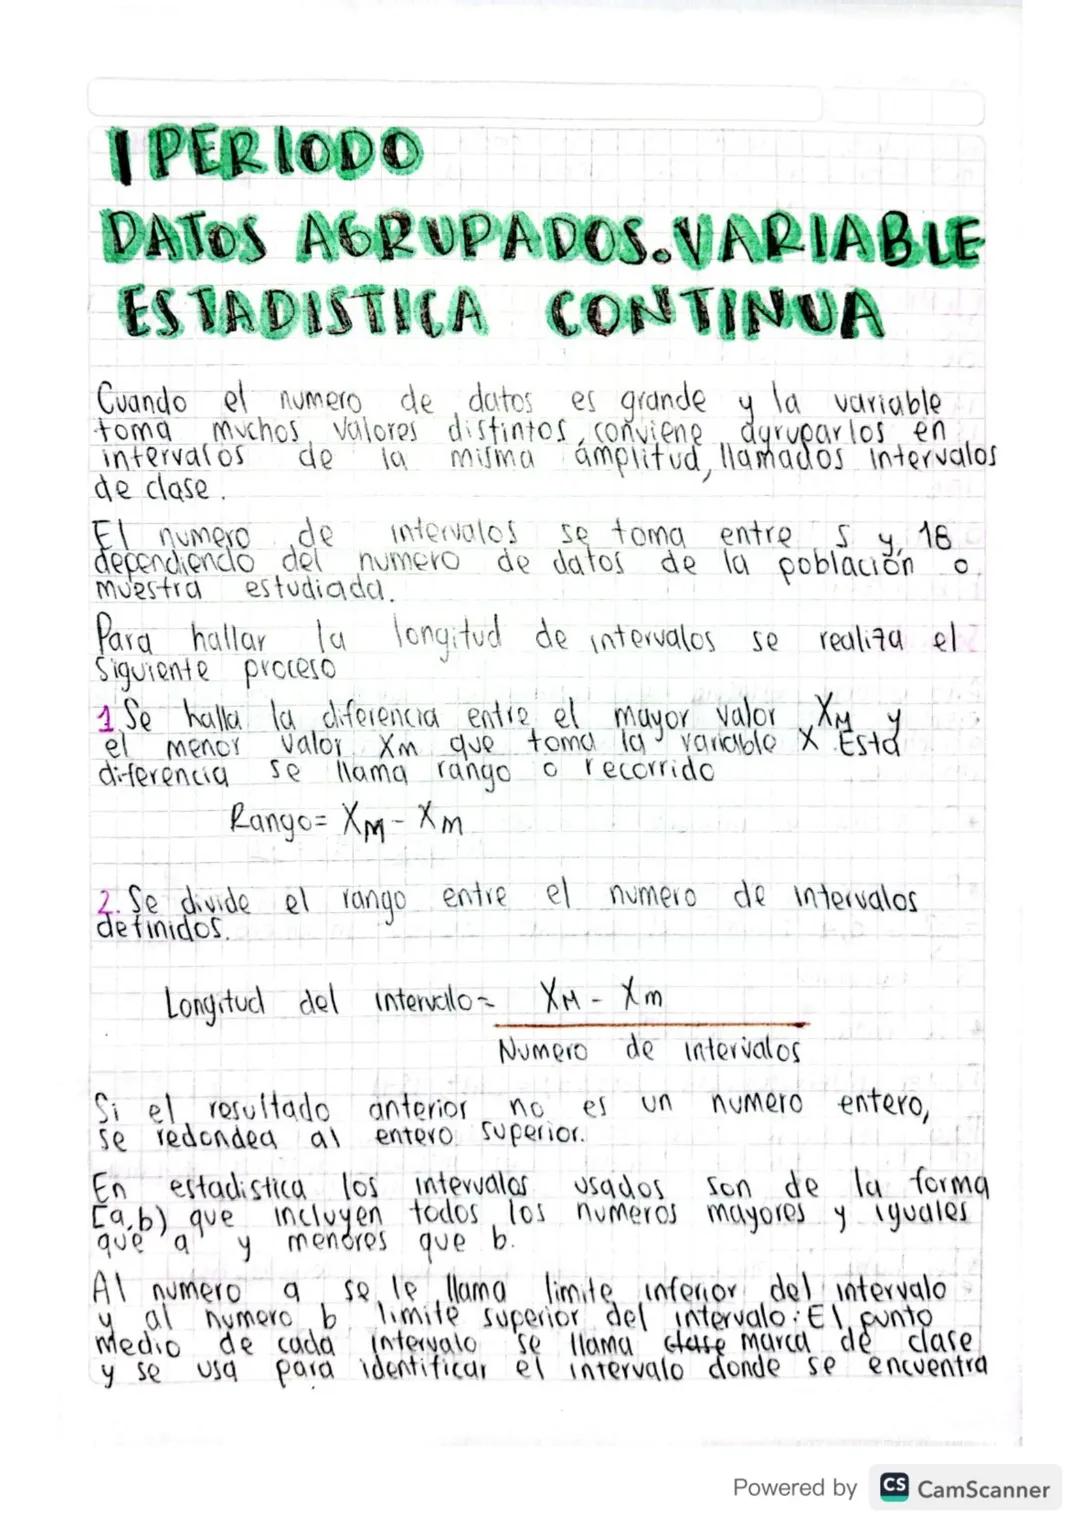 I PERIODO
DATOS AGRUPADOS.VARIABLE
ESTADISTICA CONTINUA
Cuando el numero de datos es grande y la variable
toma muchos valores distintos, conviene agruparlos en
intervalos de la misma amplitud, llamados intervalos
de clase.
El numero de intervalos se toma entre 5 y, 18
dependiendo del numero de datos de la población o
muestra estudiada.
Para hallar la longitud de intervalos se realiza el
Siguiente proceso
1 Se halla la diferencia entre el mayor valor XM y
el menor valor Xm que toma la variable X Esta
diferencia se llama rango o recorrido
Rango= XM - Xm
2. Se divide el rango entre el numero de intervalos
definidos.
Longitud del intervalo= XM - Xm
Numero de intervalos
Si el resultado anterior no es un numero entero,
se redondea al entero superior.
En estadistica los intervalos usados son de la forma
[a,b) que incluyen todos los numeros mayores y iguales
que a y menores que b.
Al numero a se le llama limite inferior del intervalo
y al numero b limite superior del intervalo. El punto
medio de cada intervalo se llama clase marca de clase
y se usa para identificar el intervalo donde se encuentra
Powered by CS CamScanner